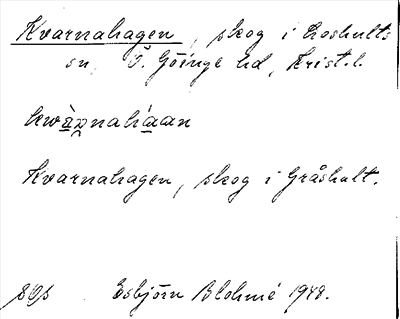 Kvarnahagen, skog i Loshults
sn Ö. Göinge hd, Krist. l.
Kvarnahagen, skog i Gråshult.
Esbjörn Blohmé 1948.